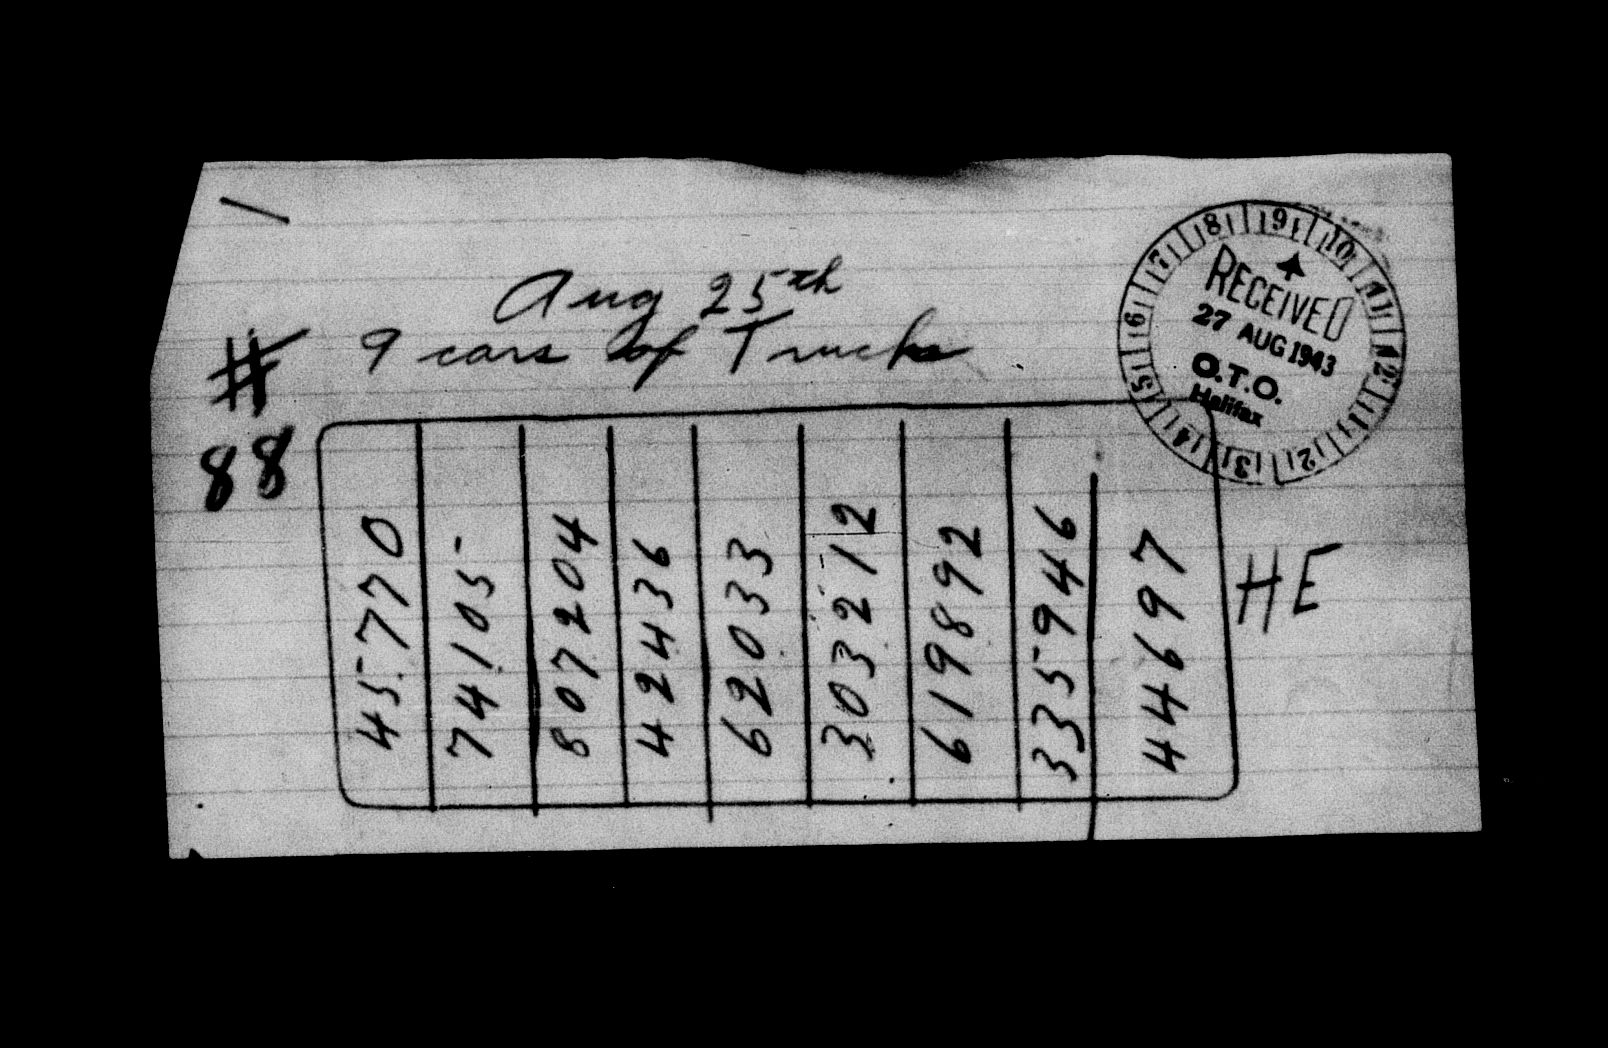 Aug 25th
9 cars of Trucks
#
88
45770
74105
807204
42436
62033
303212
619892
335946
44697
HE
8 9 10 11 12 1 2 3 4 5 6 7
RECEIVED
27 AUG 1943
O.T.O.
Halifax